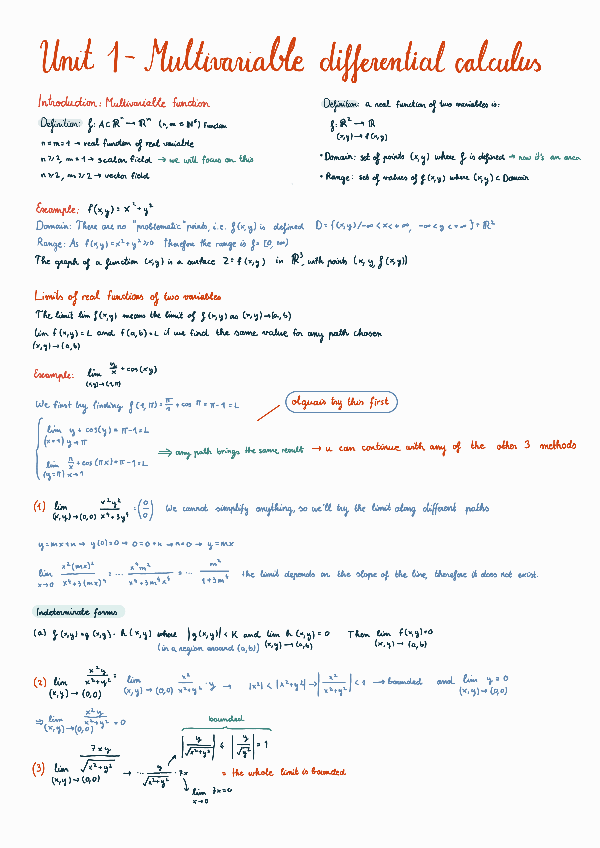 Unit 1- Multivariable differential calculus
Introduction: Multivariable function
Definition: f: A⊂ℝⁿ → ℝᵐ (n, m ∈ ℕ*) function
n=m=1 → real function of real variable
n≥2, m=1 → scalar field → we will focus on this
n≥2, m≥2 → vector field
Definition: a real function of two variables is:
f: ℝ² → ℝ
(x,y) → f(x,y)
• Domain: set of points (x,y) where f is defined → now it's an area
• Range: set of values of f(x,y) where (x,y) ∈ Domain
Example: f(x,y) = x² + y²
Domain: There are no "problematic" points, i.e. f(x,y) is defined D = {(x,y)/-∞ < x < +∞, -∞ < y < +∞} = ℝ²
Range: As f(x,y) = x²+y² ≥ 0 therefore the range is f = [0, ∞)
The graph of a function (x,y) is a surface z = f(x,y) in ℝ³, with points (x, y, f(x,y))
Limits of real functions of two variables
The limit lim f(x,y) means the limit of f(x,y) as (x,y)→(a,b)
lim f(x,y) = L and f(a,b) = L if we find the same value for any path chosen
(x,y)→(a,b)
Example: lim y/x + cos(xy)
(x,y)→(1,π)
We first try finding f(1,π) = π/1 + cos π = π-1 = L
always try this first
lim y + cos(y) = π-1 = L
(x=1) y→π
lim π/x + cos(πx) = π-1 = L
(y=π) x→1
⇒ any path brings the same result → u can continue with any of the other 3 methods
(1) lim x²y²/x⁴+3y⁴ = (0/0) We cannot simplify anything, so we'll try the limit along different paths
(x,y)→(0,0)
y = mx+n → y(0)=0 → 0=0+n → n=0 → y=mx
lim x²(mx)²/x⁴+3(mx)⁴ = ... x⁴m²/x⁴+3m⁴x⁴ = ... m²/1+3m⁴ the limit depends on the slope of the line, therefore it does not exist.
x→0
Indeterminate forms
(a) f(x,y) = g(x,y) · h(x,y) where |g(x,y)| < K and lim h(x,y) = 0 Then lim f(x,y)=0
(in a region around (a,b)) (x,y)→(a,b) (x,y)→(a,b)
(2) lim x²y/x²+y² = lim x²/x²+y² · y → |x²| < |x²+y²| → |x²/x²+y²| < 1 → bounded and lim y = 0
(x,y)→(0,0) (x,y)→(0,0) (x,y)→(0,0)
⇒ lim x²y/x²+y² = 0
(x,y)→(0,0)
bounded
|y/√x²+y²| ≤ |y/√y²| = 1
(3) lim 7xy/√x²+y² → ... y/√x²+y² · 7x = the whole limit is bounded
(x,y)→(0,0)
lim 7x=0
x→0